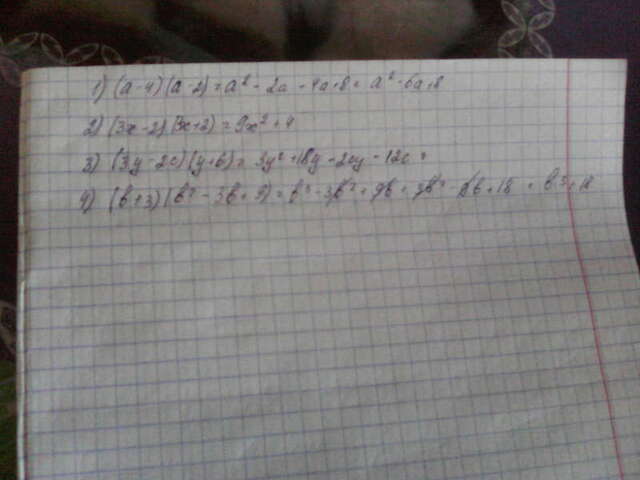 1) (a-4)(a-2) = a² - 2a - 4a+8 = a² - 6a+8
2) (3x-2)(3x+2) = 9x² + 4
3) (3y-2c)(y+6) = 3y² +18y - 2cy - 12c =
4) (b+3)(b² - 3b + 9) = b³ - 3b² + 9b + 3b² - 9b + 18 = b³ + 18